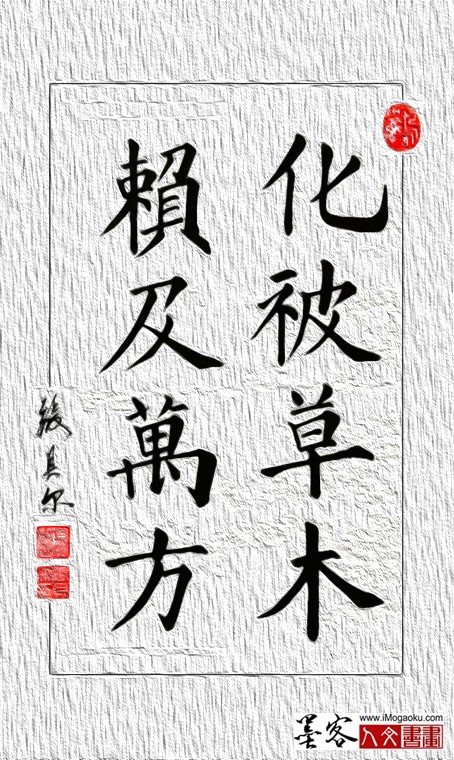 化被草木
賴及萬方
墨客
www.iMogaoku.com
人文書畫